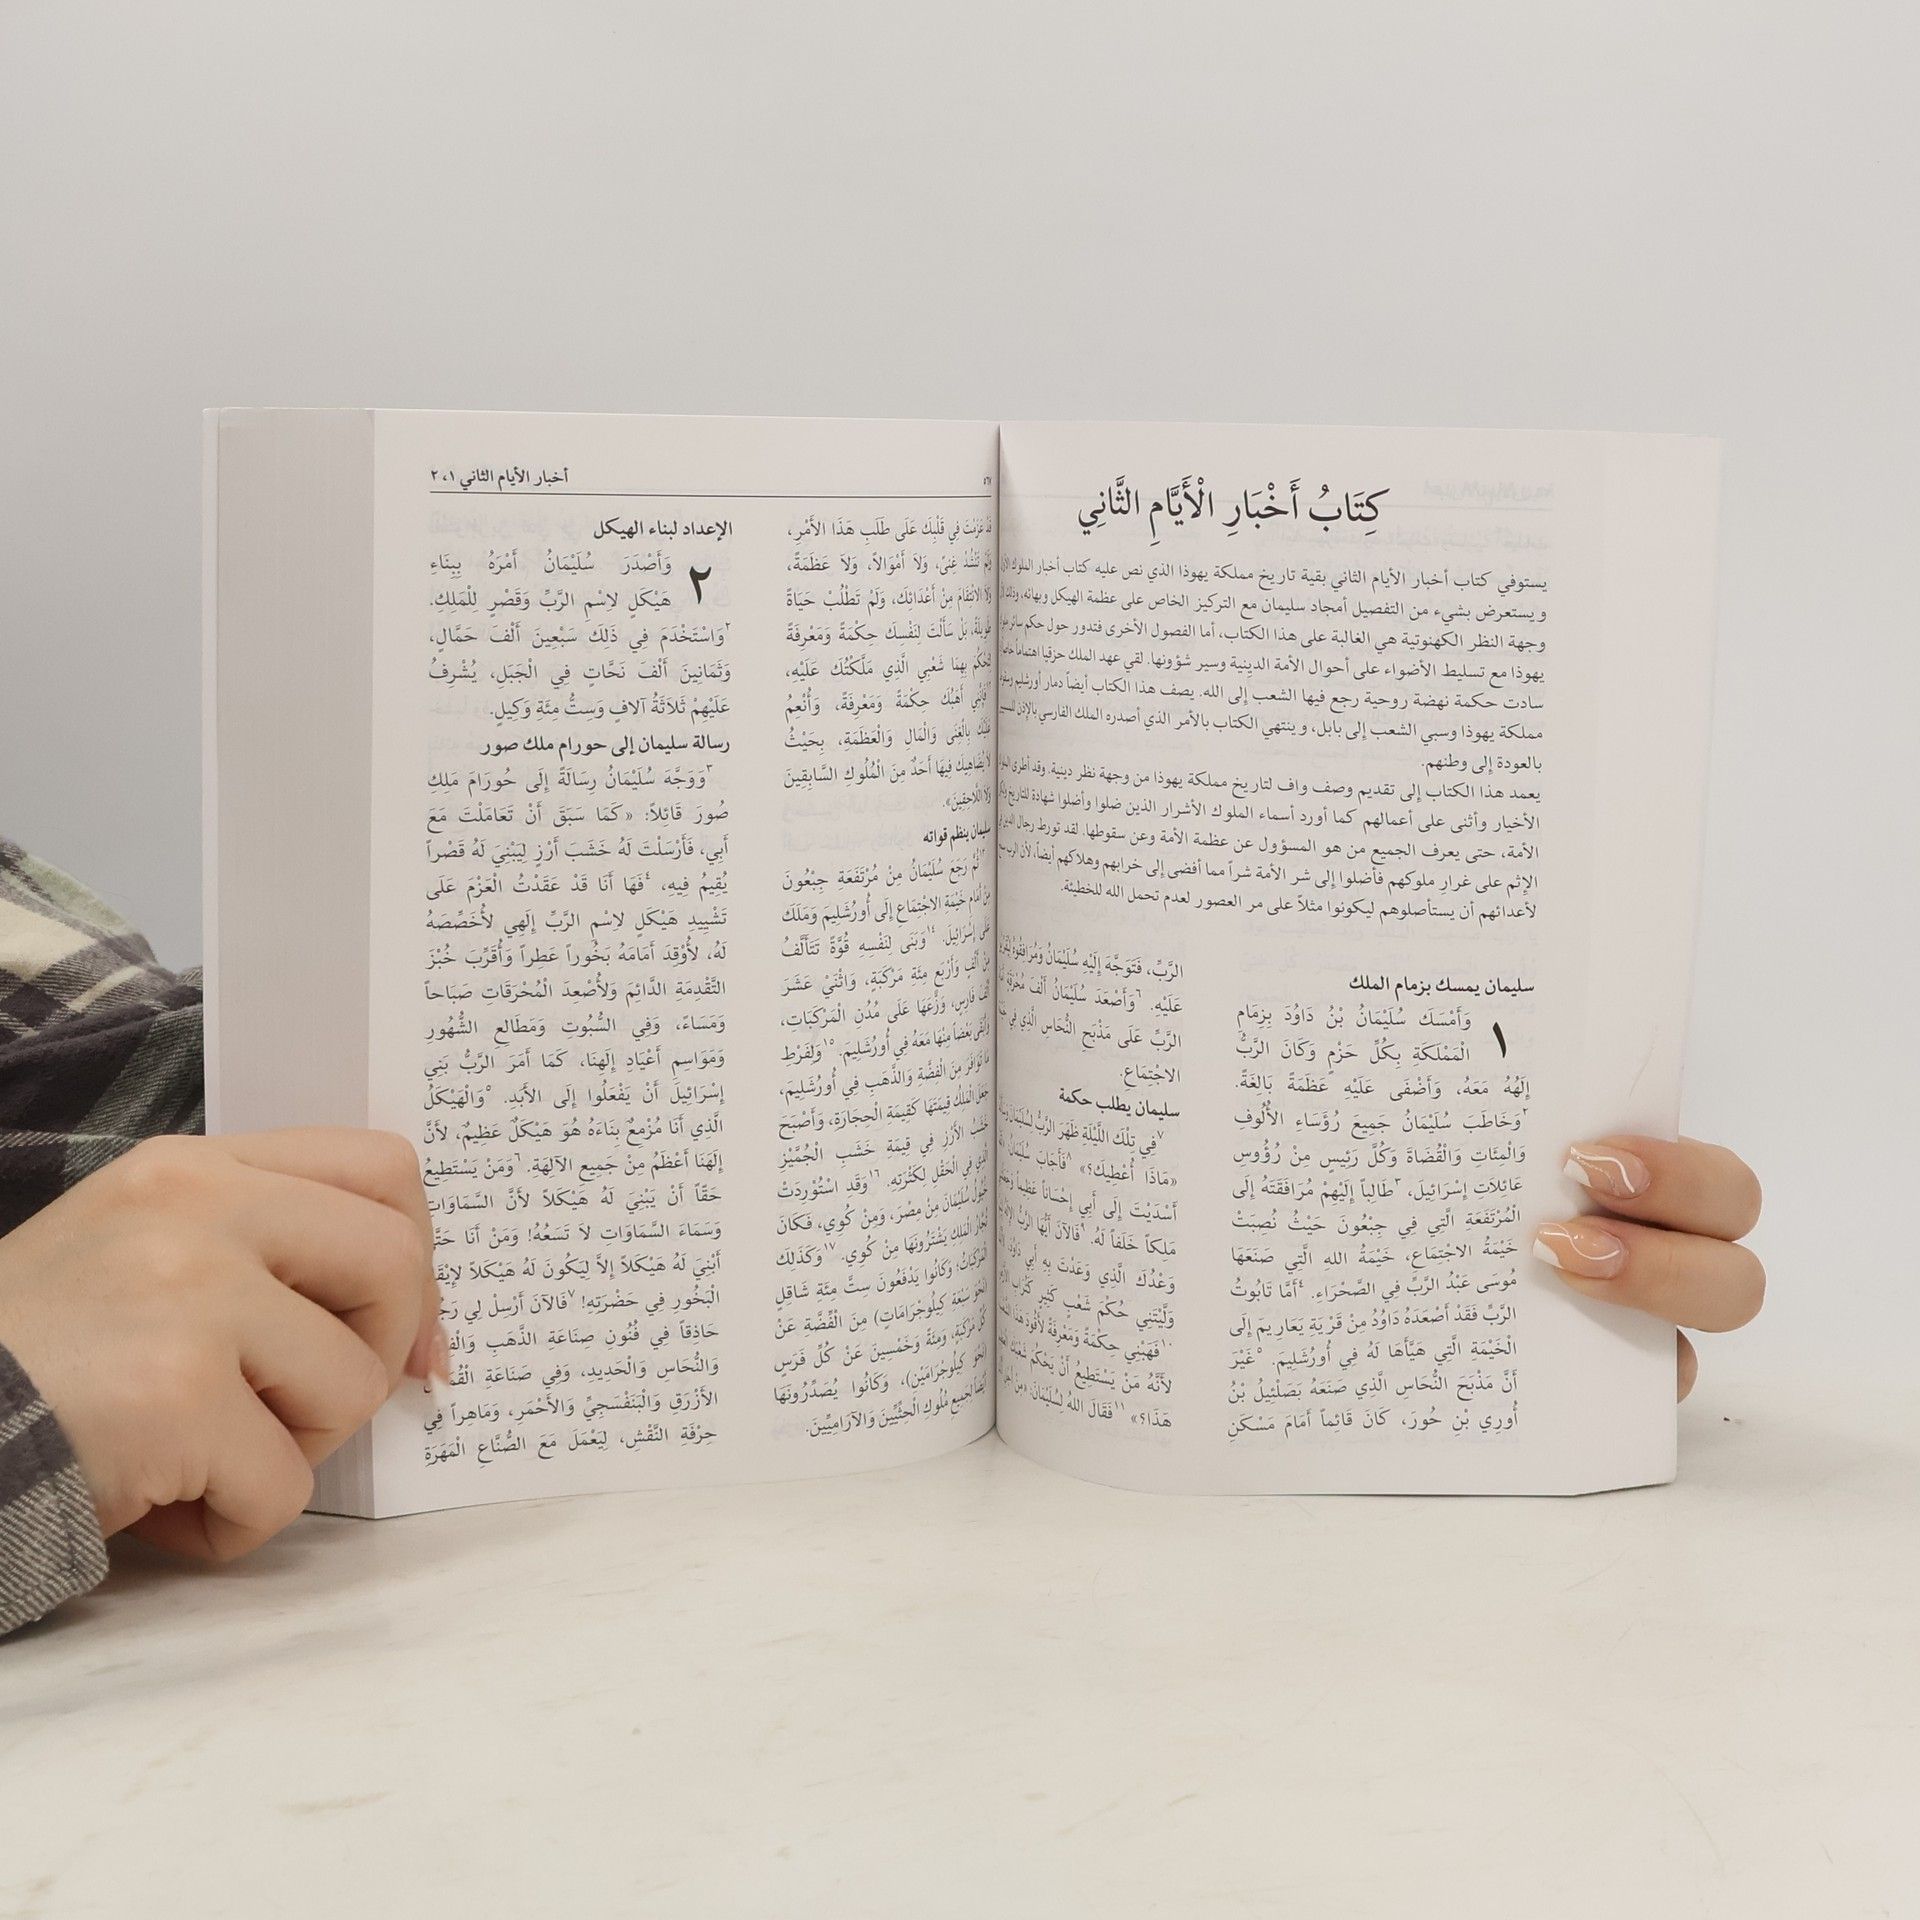 كِتَابُ أَخْبَارِ الْأَيَّامِ الثَّانِي
يستوفي كتاب أخبار الأيام الثاني بقية تاريخ مملكة يهوذا الذي نص عليه كتاب أخبار الملوك
ويستعرض بشيء من التفصيل أمجاد سليمان مع التركيز الخاص على عظمة الهيكل وبهائه، وذلك
وجهة النظر الكهنوتية هي الغالبة على هذا الكتاب، أما الفصول الأخرى فتدور حول حكم سائر
يهوذا مع تسليط الأضواء على أحوال الأمة الدينية وسير شؤونها. لقي عهد الملك حزقيا اهتماماً
سادت حكمة نهضة روحية رجع فيها الشعب إلى الله. يصف هذا الكتاب أيضاً دمار أورشليم
مملكة يهوذا وسبي الشعب إلى بابل، وينتهي الكتاب بالأمر الذي أصدره الملك الفارسي بالإذن
بالعودة إلى وطنهم.
يعمد هذا الكتاب إلى تقديم وصف واف لتاريخ مملكة يهوذا من وجهة نظر دينية. وقد أطرى
الأخيار وأثنى على أعمالهم كما أورد أسماء الملوك الأشرار الذين ضلوا وأضلوا شهادة للتاريخ
الأمة، حتى يعرف الجميع من هو المسؤول عن عظمة الأمة وعن سقوطها. لقد تورط رجال
الإثم على غرار ملوكهم فأضلوا إلى شر الأمة شراً مما أفضى إلى خرابهم وهلاكهم أيضاً، لأن الرب
لأعدائهم أن يستأصلوهم ليكونوا مثلاً على مر العصور لعدم تحمل الله للخطيئة.
سليمان يمسك بزمام الملك
١ وَأَمْسَكَ سُلَيْمَانُ بْنُ دَاوُدَ بِزِمَامِ
الْمَمْلَكَةِ بِكُلِّ حَزْمٍ وَكَانَ الرَّبُّ
إِلَهُهُ مَعَهُ، وَأَضْفَى عَلَيْهِ عَظَمَةً بَالِغَةً.
٢وَخَاطَبَ سُلَيْمَانُ جَمِيعَ رُؤَسَاءِ الأُلُوفِ
وَالْمِئَاتِ وَالْقُضَاةَ وَكُلَّ رَئِيسٍ مِنْ رُؤُوسِ
عَائِلاَتِ إِسْرَائِيلَ، ٣طَالِباً إِلَيْهِمْ مُرَافَقَتَهُ إِلَى
الْمُرْتَفَعَةِ الَّتِي فِي جِبْعُونَ حَيْثُ نُصِبَتْ
خَيْمَةُ الاجْتِمَاعِ، خَيْمَةُ اللهِ الَّتِي صَنَعَهَا
مُوسَى عَبْدُ الرَّبِّ فِي الصَّحْرَاءِ. ٤أَمَّا تَابُوتُ
الرَّبِّ فَقَدْ أَصْعَدَهُ دَاوُدُ مِنْ قَرْيَةِ يَعَارِيمَ إِلَى
الْخَيْمَةِ الَّتِي هَيَّأَهَا لَهُ فِي أُورُشَلِيمَ. ٥غَيْرَ
أَنَّ مَذْبَحَ النُّحَاسِ الَّذِي صَنَعَهُ بَصَلْئِيلُ بْنُ
أُورِي بْنِ حُورَ، كَانَ قَائِماً أَمَامَ مَسْكَنِ
الرَّبِّ، فَتَوَجَّهَ إِلَيْهِ سُلَيْمَانُ وَمُرَافِقُوهُ
عَلَيْهِ. ٦وَأَصْعَدَ سُلَيْمَانُ أَلْفَ مُحْرَقَةٍ
الرَّبِّ عَلَى مَذْبَحِ النُّحَاسِ الَّذِي فِي
الاجْتِمَاعِ.
سليمان يطلب حكمة
٧فِي تِلْكَ اللَّيْلَةِ ظَهَرَ الرَّبُّ لِسُلَيْمَانَ
«مَاذَا أُعْطِيكَ؟» ٨فَأَجَابَ سُلَيْمَانُ
أَسْدَيْتَ إِلَى أَبِي إِحْسَاناً عَظِيماً
مَلِكاً خَلَفاً لَهُ. ٩فَالآنَ أَيُّهَا الرَّبُّ
وَعْدُكَ الَّذِي وَعَدْتَ بِهِ أَبِي دَاوُدَ،
وَلَّيْتَنِي حُكْمَ شَعْبٍ كَثِيرٍ كَتُرَابِ
١٠فَهَبْنِي حِكْمَةً وَمَعْرِفَةً لأَقُودَ هَذَا
لأَنَّهُ مَنْ يَسْتَطِيعُ أَنْ يَحْكُمَ شَعْبَكَ
هَذَا؟» ١١فَقَالَ اللهُ لِسُلَيْمَانَ:
أخبار الأيام الثاني ١، ٢
قَدْ عَزَمْتَ فِي قَلْبِكَ عَلَى طَلَبِ هَذَا الأَمْرِ،
وَلَمْ تَنْشُدْ غِنىً، وَلاَ أَمْوَالاً، وَلاَ عَظَمَةً،
وَلاَ الانْتِقَامَ مِنْ أَعْدَائِكَ، وَلَمْ تَطْلُبْ حَيَاةً
طَوِيلَةً، بَلْ سَأَلْتَ لِنَفْسِكَ حِكْمَةً وَمَعْرِفَةً
لِتَحْكُمَ بِهِمَا شَعْبِي الَّذِي مَلَّكْتُكَ عَلَيْهِ،
١٢فَإِنِّي أَهَبُكَ حِكْمَةً وَمَعْرِفَةً، وَأُنْعِمُ
عَلَيْكَ بِالْغِنَى وَالْمَالِ وَالْعَظَمَةِ، بِحَيْثُ
لاَ يُضَاهِيكَ فِيهَا أَحَدٌ مِنَ الْمُلُوكِ السَّابِقِينَ
وَلاَ اللَّاحِقِينَ».
سليمان ينظم قواته
١٣ثُمَّ رَجَعَ سُلَيْمَانُ مِنْ مُرْتَفَعَةِ جِبْعُونَ
مِنْ أَمَامِ خَيْمَةِ الاجْتِمَاعِ إِلَى أُورُشَلِيمَ وَمَلَكَ
عَلَى إِسْرَائِيلَ. ١٤وَبَنَى لِنَفْسِهِ قُوَّةً تَتَأَلَّفُ
مِنْ أَلْفٍ وَأَرْبَعِ مِئَةِ مَرْكَبَةٍ، وَاثْنَيْ عَشَرَ
أَلْفَ فَارِسٍ، وَزَّعَهَا عَلَى مُدُنِ الْمَرْكَبَاتِ،
وَأَبْقَى بَعْضاً مِنْهَا مَعَهُ فِي أُورُشَلِيمَ. ١٥وَلِفَرْطِ
مَا تَوَافَرَ مِنَ الْفِضَّةِ وَالذَّهَبِ فِي أُورُشَلِيمَ،
جَعَلَ الْمَلِكُ قِيمَتَهَا كَقِيمَةِ الْحِجَارَةِ، وَأَصْبَحَ
خَشَبُ الأَرْزِ فِي قِيمَةِ خَشَبِ الْجُمَّيْزِ
الَّذِي فِي الْحَقْلِ لِكَثْرَتِهِ. ١٦وَقَدِ اسْتُوْرِدَتْ
خُيُولُ سُلَيْمَانَ مِنْ مِصْرَ، وَمِنْ كُوِي، فَكَانَ
تُجَّارُ الْمَلِكِ يَشْتَرُونَهَا مِنْ كُوِي. ١٧وَكَذَلِكَ
الْمَرْكَبَاتُ؛ وَكَانُوا يَدْفَعُونَ سِتَّ مِئَةِ شَاقِلٍ
(نَحْوَ سَبْعَةِ كِيلُوجْرَامَاتٍ) مِنَ الْفِضَّةِ عَنْ
كُلِّ مَرْكَبَةٍ، وَمِئَةً وَخَمْسِينَ عَنْ كُلِّ فَرَسٍ
(نَحْوَ كِيلُوجْرَامَيْنِ)، وَكَانُوا يُصَدِّرُونَهَا
أَيْضاً لِجَمِيعِ مُلُوكِ الْحِثِّيِّينَ وَالآرَامِيِّينَ.
الإعداد لبناء الهيكل
٢ وَأَصْدَرَ سُلَيْمَانُ أَمْرَهُ بِبِنَاءِ
هَيْكَلٍ لاِسْمِ الرَّبِّ وَقَصْرٍ لِلْمَلِكِ.
٢وَاسْتَخْدَمَ فِي ذَلِكَ سَبْعِينَ أَلْفَ حَمَّالٍ،
وَثَمَانِينَ أَلْفَ نَحَّاتٍ فِي الْجَبَلِ، يُشْرِفُ
عَلَيْهِمْ ثَلاَثَةُ آلافٍ وَسِتُّ مِئَةِ وَكِيلٍ.
رسالة سليمان إلى حورام ملك صور
٣وَوَجَّهَ سُلَيْمَانُ رِسَالَةً إِلَى حُورَامَ مَلِكِ
صُورَ قَائِلاً: «كَمَا سَبَقَ أَنْ تَعَامَلْتَ مَعَ
أَبِي، فَأَرْسَلْتَ لَهُ خَشَبَ أَرْزٍ لِيَبْنِيَ لَهُ قَصْراً
يُقِيمُ فِيهِ، ٤فَهَا أَنَا قَدْ عَقَدْتُ الْعَزْمَ عَلَى
تَشْيِيدِ هَيْكَلٍ لاِسْمِ الرَّبِّ إِلَهِي لأُخَصِّصَهُ
لَهُ، لأُوْقِدَ أَمَامَهُ بَخُوراً عَطِراً وَأُقَرِّبَ خُبْزَ
التَّقْدِمَةِ الدَّائِمَ وَلأُصْعِدَ الْمُحْرَقَاتِ صَبَاحاً
وَمَسَاءً، وَفِي السُّبُوتِ وَمَطَالِعِ الشُّهُورِ
وَمَوَاسِمِ أَعْيَادِ إِلَهِنَا، كَمَا أَمَرَ الرَّبُّ بَنِي
إِسْرَائِيلَ أَنْ يَفْعَلُوا إِلَى الأَبَدِ. ٥وَالْهَيْكَلُ
الَّذِي أَنَا مُزْمِعٌ بِنَاءَهُ هُوَ هَيْكَلٌ عَظِيمٌ، لأَنَّ
إِلَهَنَا أَعْظَمُ مِنْ جَمِيعِ الآلِهَةِ. ٦وَمَنْ يَسْتَطِيعُ
حَقّاً أَنْ يَبْنِيَ لَهُ هَيْكَلاً لأَنَّ السَّمَاوَاتِ
وَسَمَاءَ السَّمَاوَاتِ لاَ تَسَعُهُ! وَمَنْ أَنَا حَتَّى
أَبْنِيَ لَهُ هَيْكَلاً إِلاَّ لِيَكُونَ لَهُ هَيْكَلاً
الْبَخُورِ فِي حَضْرَتِهِ! ٧فَالآنَ أَرْسِلْ لِي
حَاذِقاً فِي فُنُونِ صِنَاعَةِ الذَّهَبِ
وَالنُّحَاسِ وَالْحَدِيدِ، وَفِي صَنَاعَةِ
الأَزْرَقِ وَالْبَنَفْسَجِيِّ وَالأَحْمَرِ، وَمَاهِراً فِي
حِرْفَةِ النَّقْشِ، لِيَعْمَلَ مَعَ الصُّنَّاعِ الْمَهَرَةِ